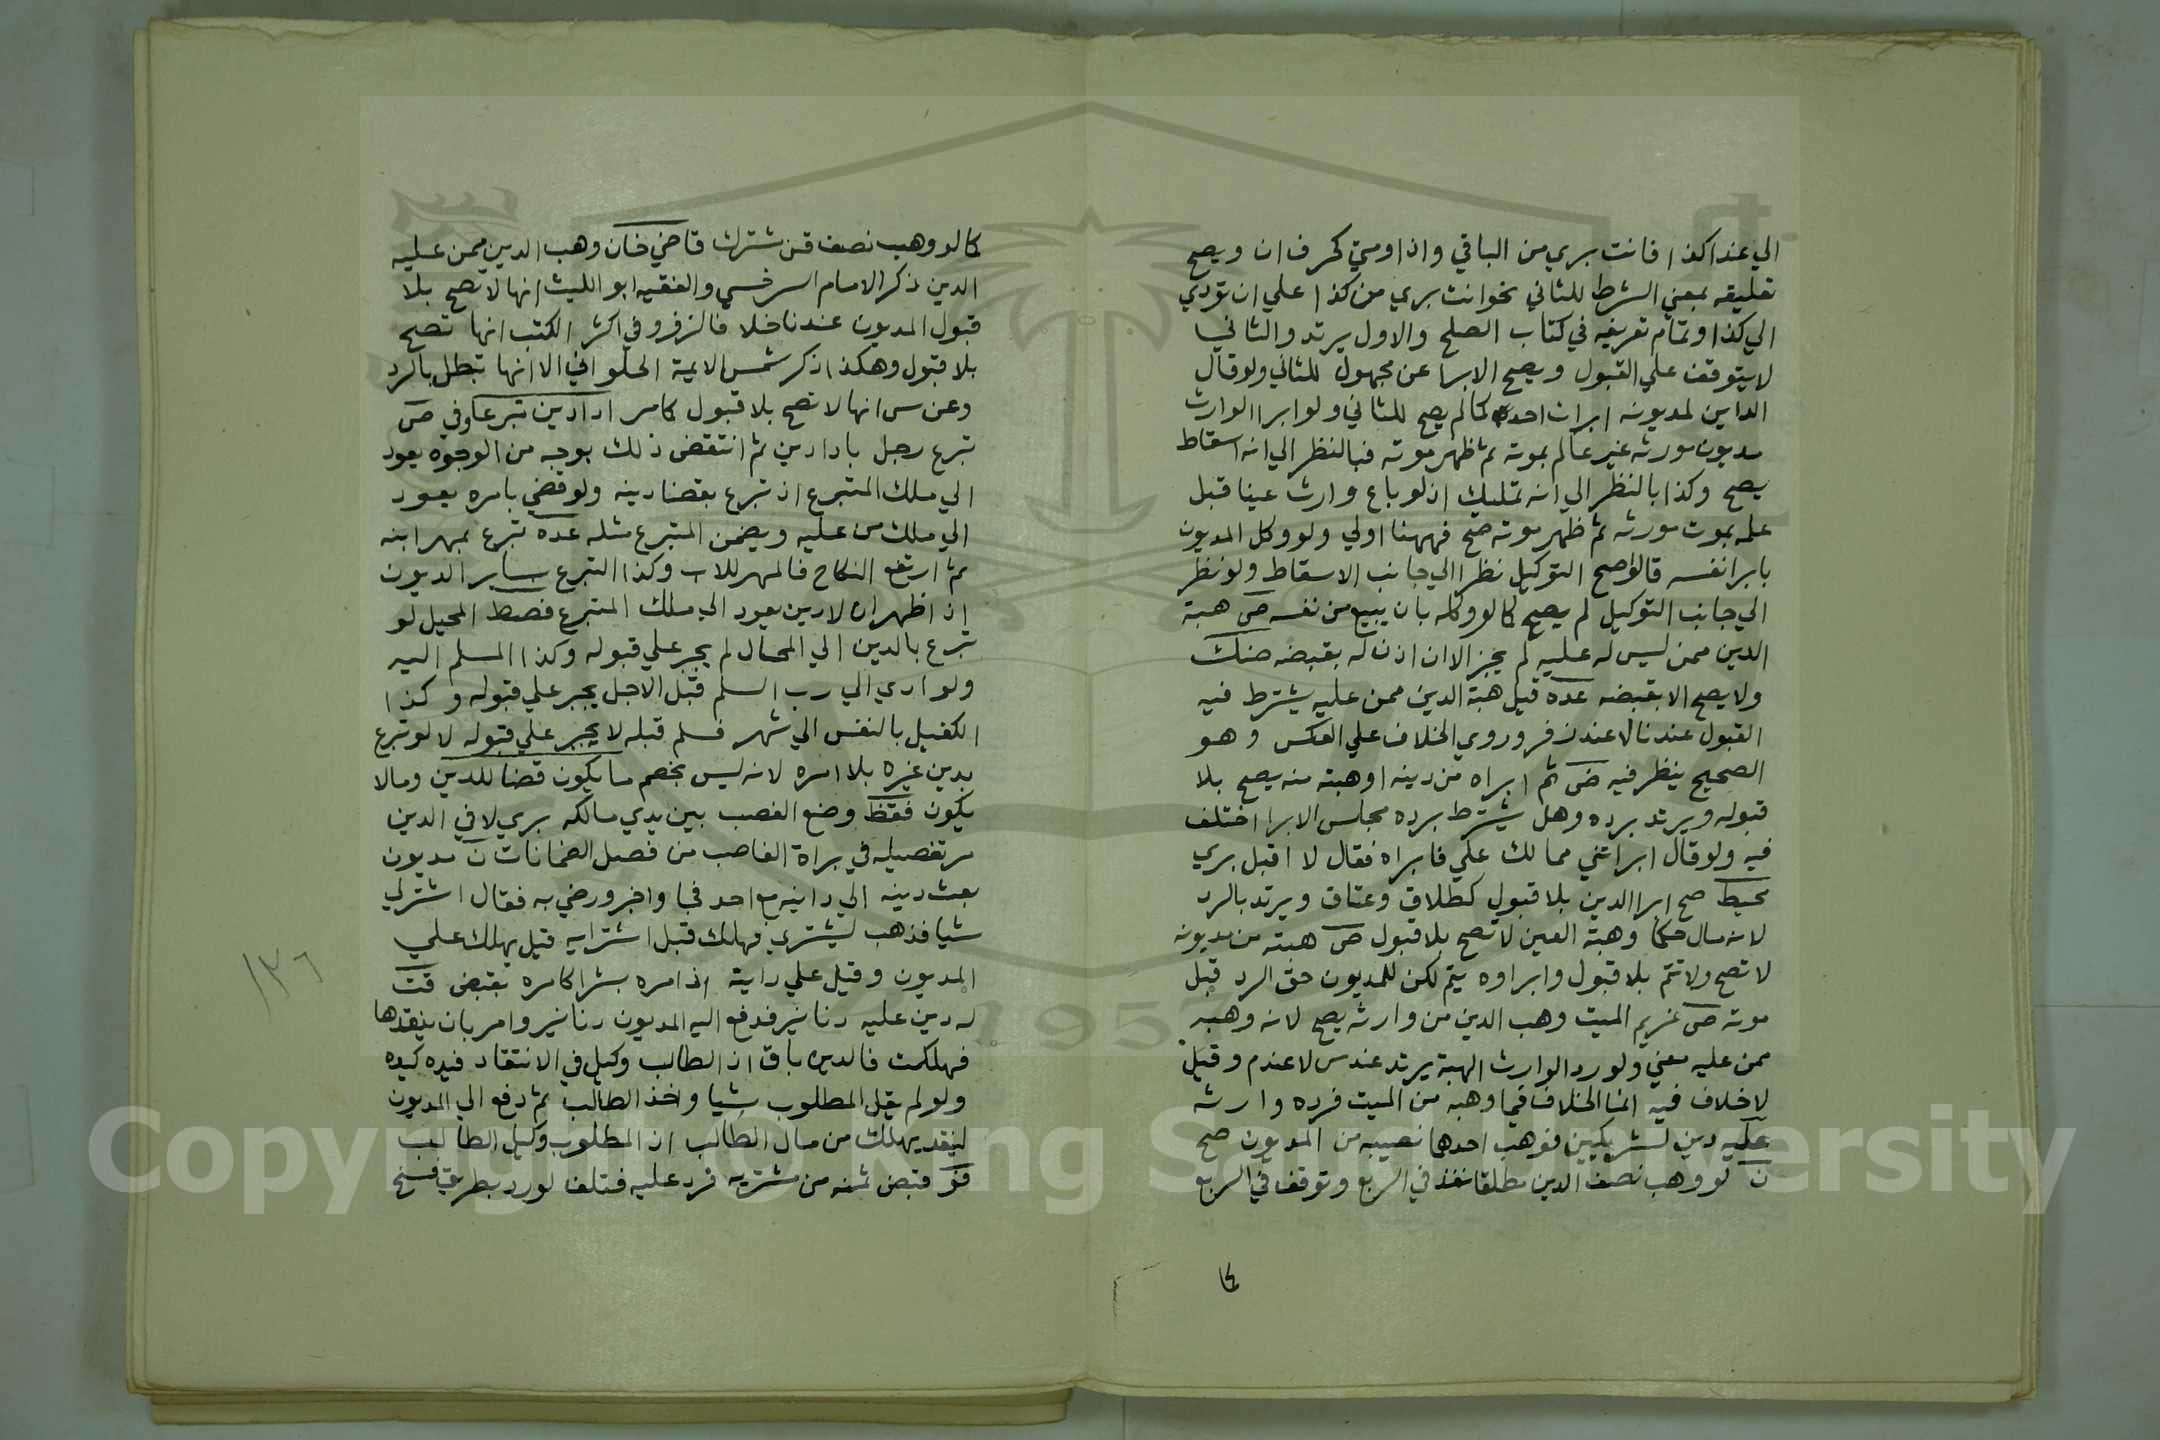 الي عندا كذا فانت بري من الباقي وان اومتي كحرف ان ويصح
تعليقه بمعني الشرط للثاني نحوانت بري من كذا علي ان تؤدي
الي كذا وتمام تعريفه في كتاب الصلح والاول يرتد والثاني
لا يتوقف علي القبول ويصح الابرا عن مجهول للثاني ولو قال
الداين لمديونه ابرات احدكما لم يصح للثاني ولو ابرا الوارث
مديون مورثه غير عالم بموته ثم ظهر موته فبالنظر الي انه اسقاط
يصح وكذا بالنظر الي انه تمليك اذ لو باع وارث عينا قبل
علمه بموت مورثه ثم ظهر موته صح فههنا اولي ولو وكل المديون
بابرا نفسه قالوا صح التوكيل نظرا الي جانب الاسقاط ولو نظر
الي جانب التوكيل لم يصح كما لو وكله بان يبيع من نفسه ص هبة
الدين ممن ليس له عليه لم يجز الا ان اذن له بقبضه
ولا يصح الا بقبضه عده قيل هبة الدين ممن عليه يشترط فيه
القبول عندنا لا عند زفر وروي الخلاف علي العكس وهو
الصحيح ينظر فيه ثم ابراه من دينه او هبته منه يصح بلا
قبوله ويرتد برده وهل يشترط برده مجلس الابرا اختلف
فيه ولو قال ابراتني مما لك علي فابراه فقال لا اقبل بري
محيط صح ابرا الدين بلا قبول كطلاق وعتاق ويرتد بالرد
لانه مال حكما وهبة العين لا تصح بلا قبول ص هبته من مديونه
لا تصح ولا تتم بلا قبول وابراوه يتم لكن للمديون حق الرد قبل
موته ص غريم الميت وهب الدين من وارثه يصح لانه وهبه
ممن عليه معني ولو رد الوارث الهبة يرتد عند س لا عند م وقيل
لا خلاف فيه انما الخلاف فيما وهبه من الميت فرده وارثه
عليه دين لشريكين فوهب احدهما نصيبه من المديون صح
ن لو وهب نصف الدين مطلقا نفذ في الربع وتوقف في الربع
كما
كما لو وهب نصف قن مشترك قاضي خان وهب الدين ممن عليه
الدين ذكر الامام السرخسي والفقيه ابو الليث انها لا تصح بلا
قبول المديون عندنا خلا فا لزفر وفي اكثر الكتب انها تصح
بلا قبول وهكذا ذكر شمس الايمة الحلواني الا انها تبطل بالرد
وعن س انها لا تصح بلا قبول كما مر ادا دين تبرعا وفي ص
تبرع رجل بادا دين ثم انتقض ذلك بوجه من الوجوه يعود
الي ملك المتبرع اذ تبرع بقضا دينه ولو قضي بامره يعود
الي ملك من عليه ويضمن المتبرع مثله عده تبرع بمهر ابنه
ثم ارتفع النكاح فالمهر للاب وكذا التبرع بساير الديون
اذ اظهر ان لا دين يعود الي ملك المتبرع فصط المحيل لو
تبرع بالدين الي المحال لم يجبر علي قبوله وكذا المسلم اليه
ولو ادي الي رب السلم قبل الاجل يجبر علي قبوله وكذا
الكفيل بالنفس الي شهر فسلم قبله لا يجبر علي قبوله لا لو تبرع
بدين غيره بلا امره لانه ليس بخصم ما يكون قضا للدين وما لا
يكون فقظ وضع الغصب بين يدي مالكه بري لا في الدين
مر تفصيله في براة الغاصب من فصل الضمانات ن مديون
بعث دينه الي داينه مع احد فجا واخبر ورضي به فقال اشتر لي
شيا فذهب ليشتري فهلك قبل اشترايه قيل يهلك علي
المديون وقيل علي داينه اذ امره بشرا كامره بقبض قت
له دين عليه دنانير فدفع اليه المديون دنانير وامر بان ينقدها
فهلكت فالدين باق اذ الطالب وكيل في الانتقاد فيده كيده
ولو لم يقل المطلوب شيا واخذ الطالب ثم دفع الي المديون
لينقد يهلك من مال الطالب اذ المطلوب وكيل الطالب
فو قبض ثمنه من مشتريه فرد عليه فتلفا لو رد بطريق فسخ
١٣٦
Copyright © King Saud University
1957